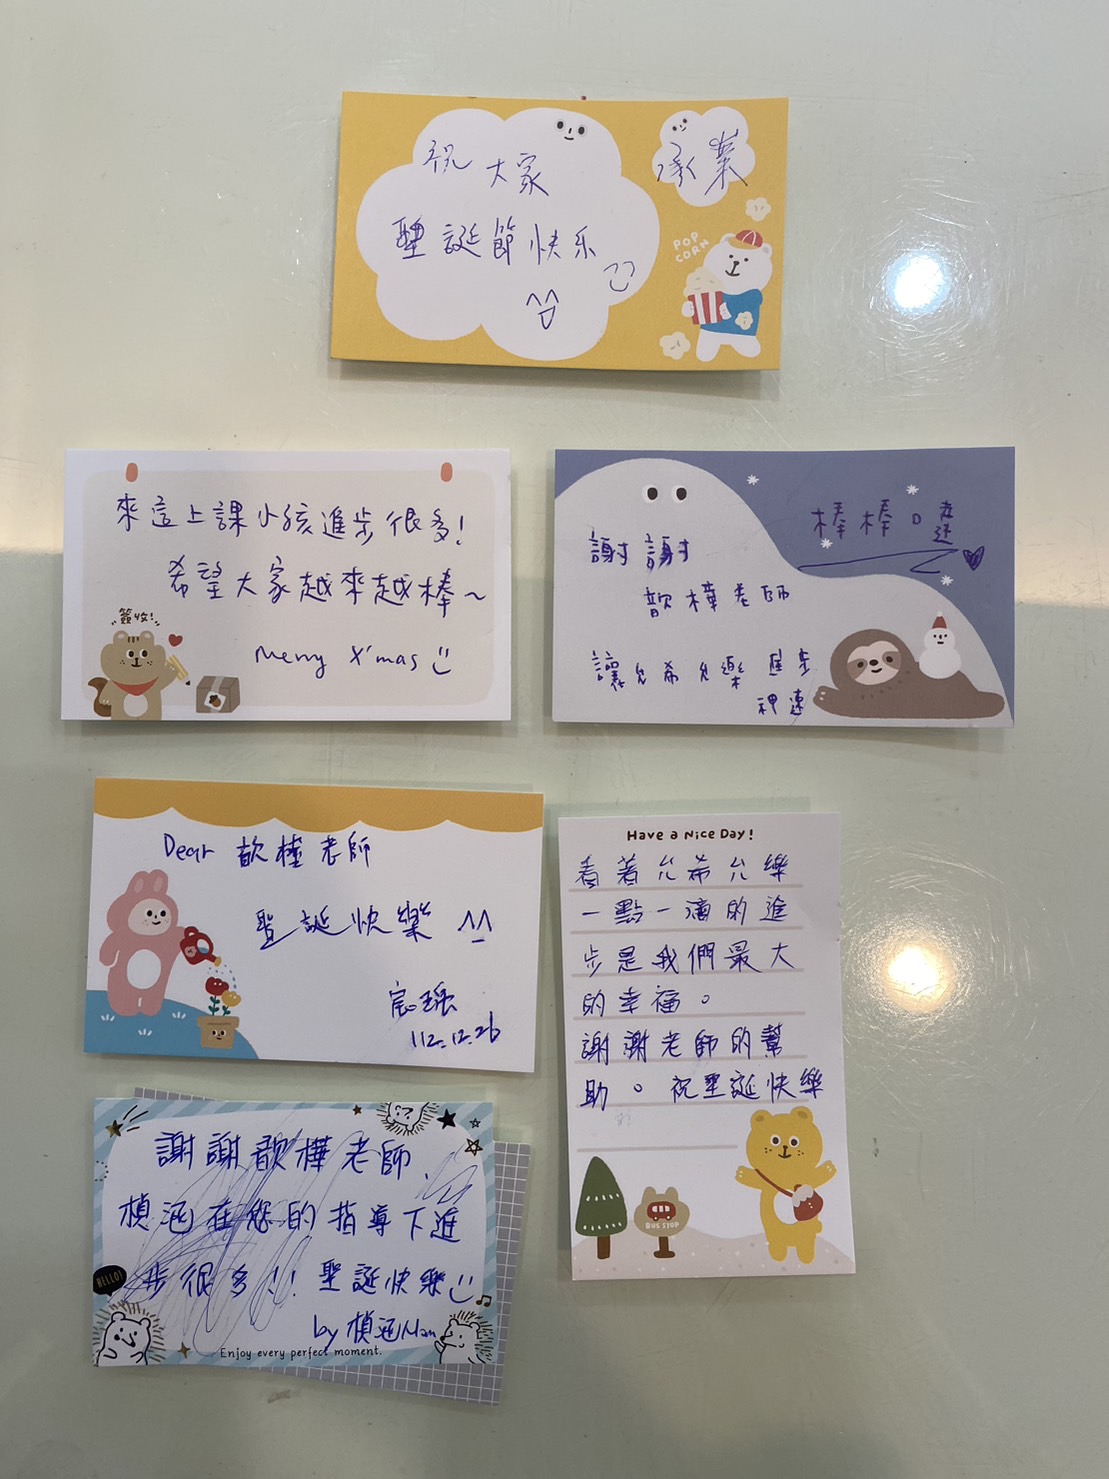 祝大家
聖誕節快乐
承業
POP
CORN
來這上課小孩進步很多!
希望大家越來越棒~
簽收!
Merry X'mas
棒棒
謝謝
歆樺老師
讓允希允樂進步
神速
Dear 歆樺老師
聖誕快樂 ^^
112.12.26
Have a Nice Day!
看著允希允樂
一點一滴的進
步是我們最大
的幸福。
謝謝老師的幫
助。祝聖誕快樂
BUS STOP
謝謝歆樺老師,
楨涵在您的指導下進
步很多!! 聖誕快樂
HELLO!
by 楨涵Mom
Enjoy every perfect moment.